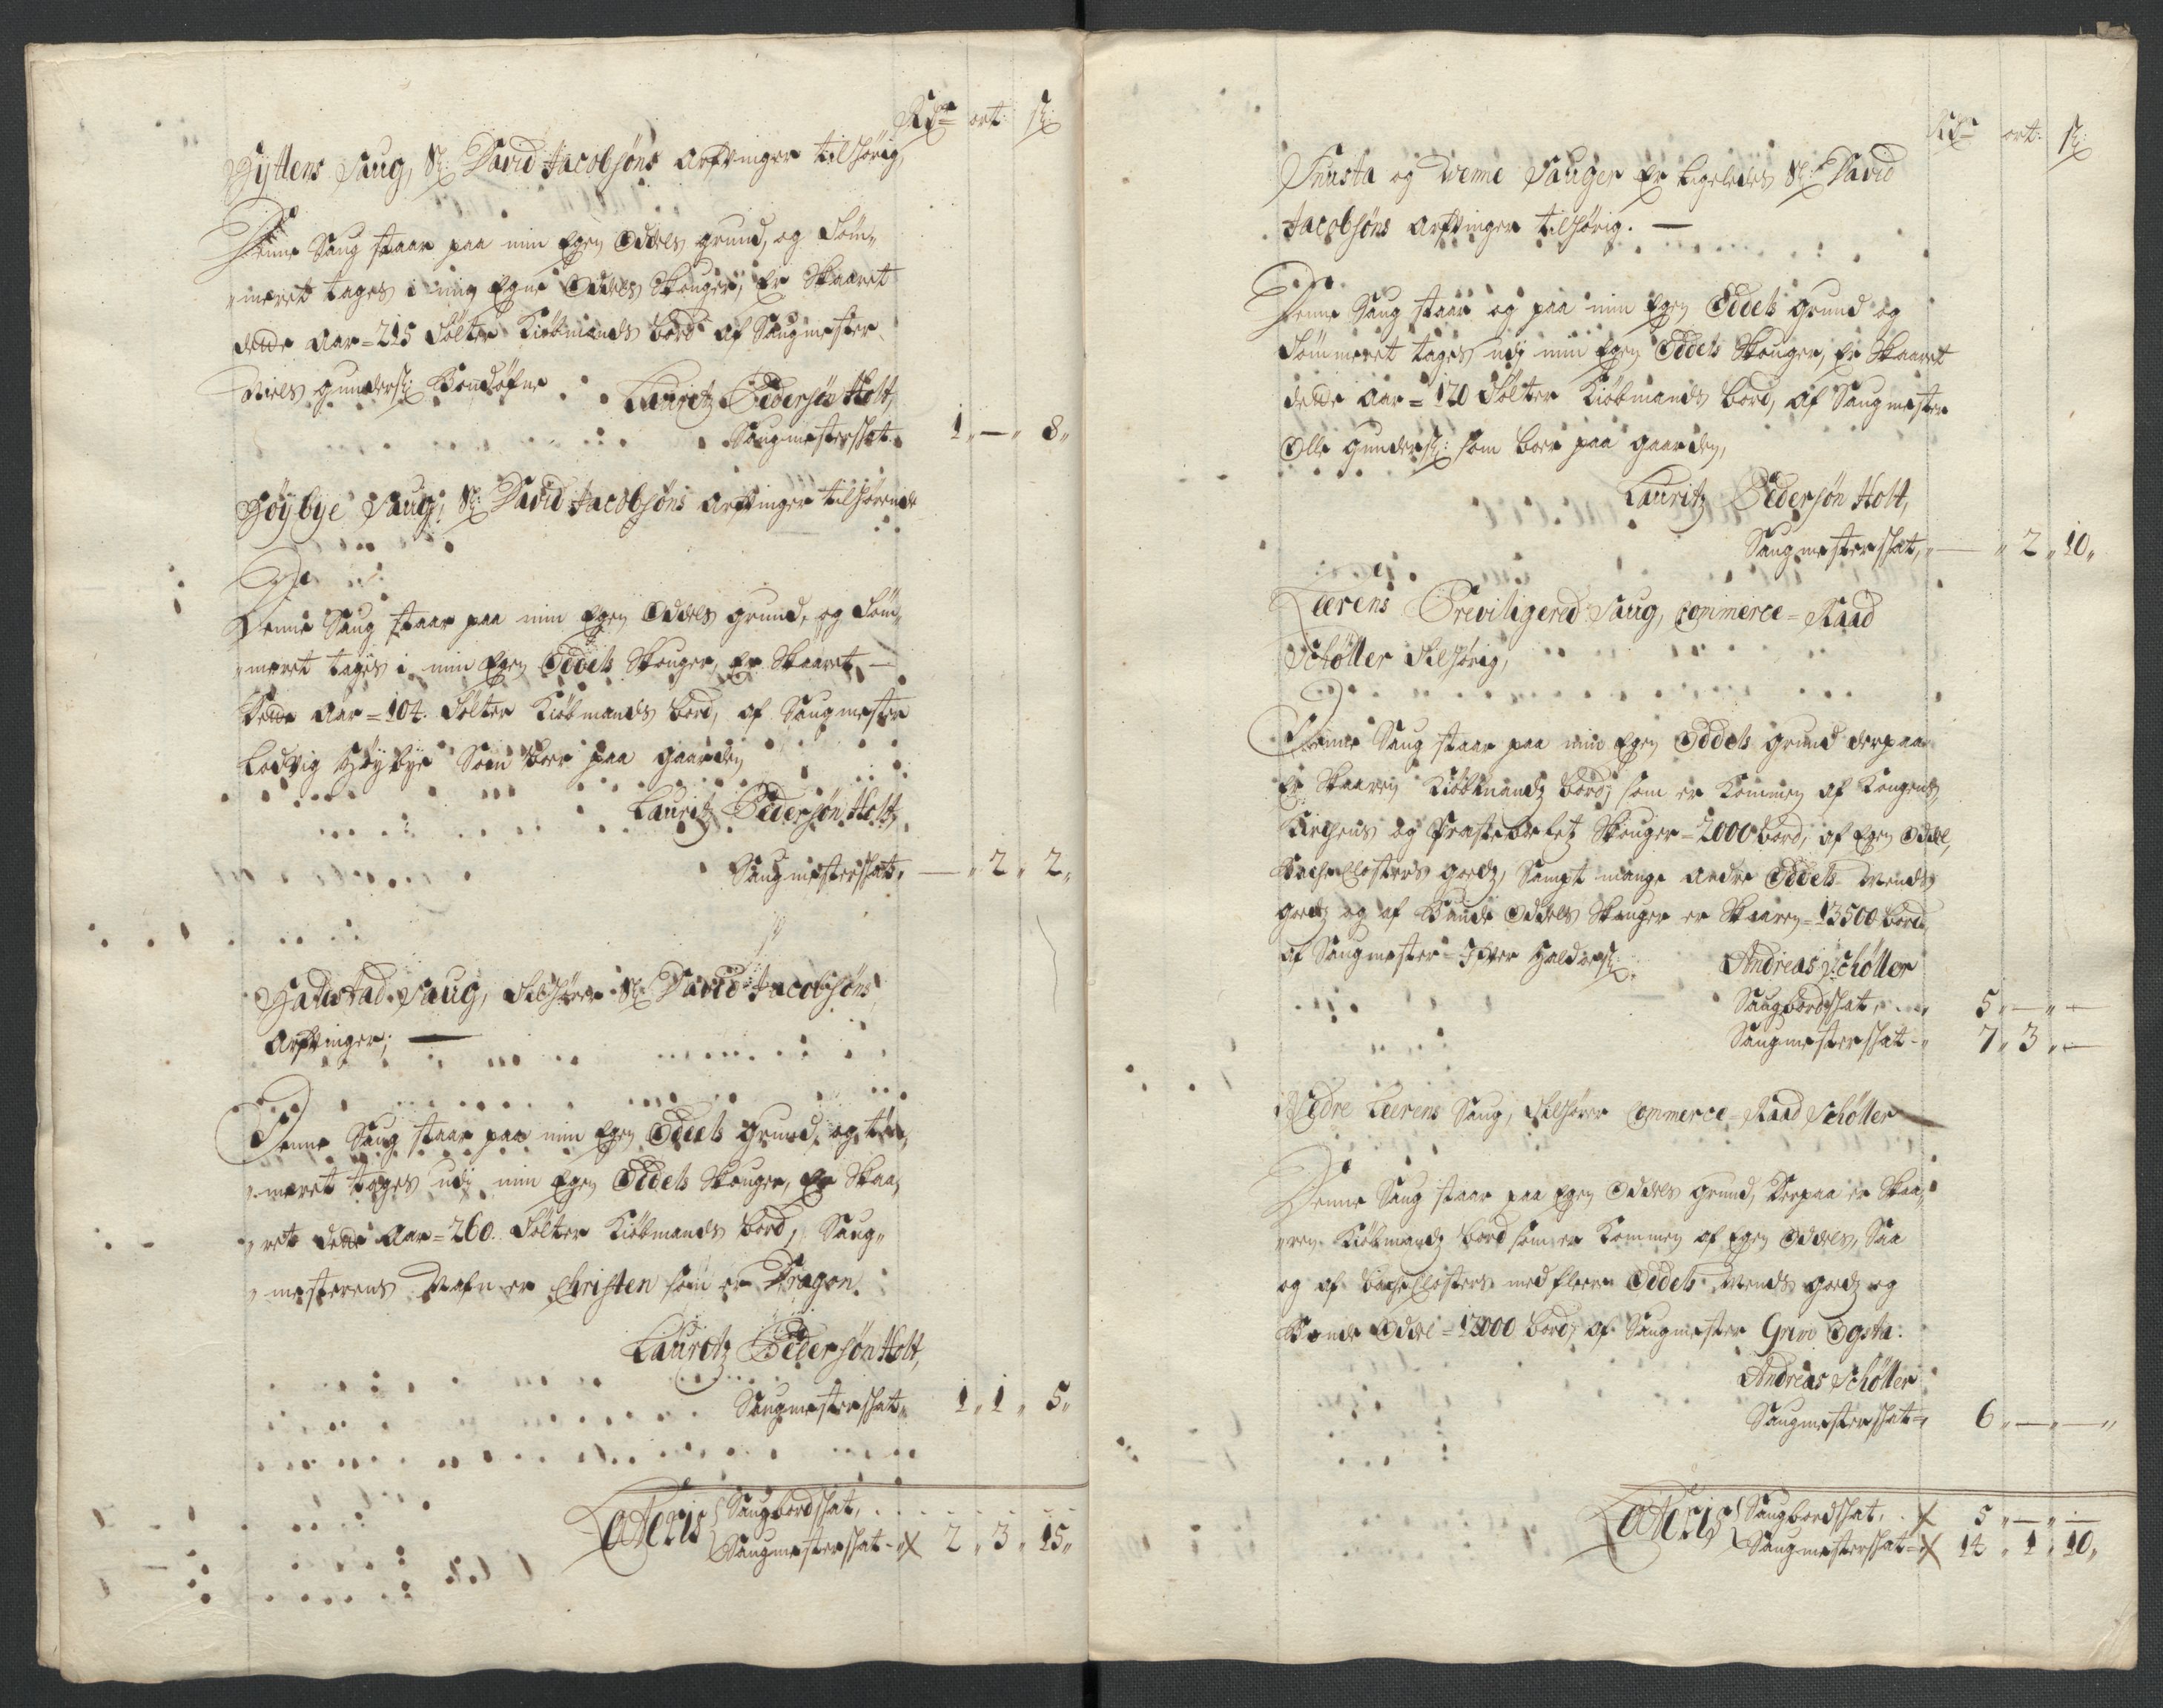 Rdr ort: ß:
Hyttens Saug, Sl: David Jacobsøns Arfvinger tilhørig,
Denne Saug staar paa min Egen Oddels grund, og Tøm¬
meret tages i min Egne Oddels Skouger, Er Skaaret
dette Aar = 215 Tolter Kiøbmands bord af Saugmester
Niels Gunders:
Lauritz Pedersøn Holt,
Saugmesterskat 1 „ — „ 8 „
Høybye Saug, Sl: David Jacobsøns Arfvinger tilhørende
Denne Saug staar paa min Egen Oddels grund, og Tøm¬
meret tages i min Egen Oddels Skouger, Er Skaaret —
Dette Aar = 104. Tolter Kiøbmands bord, af Saugmester
Lodvig Høybye Som boer paa gaarden
Lauritz Pedersøn Holt,
Saugmesterskat, — „ 2 „ 2 „
Saug, Tilhører Sl: David Jacobsøns
Arfvinger, —
Denne Saug staar paa min Egen Oddels grund, og Tøm¬
meret tages udj min Egen Oddels Skouger, Er Skaa¬
ret dette Aar = 260. Tolter Kiøbmands bord, Saug¬
mesterens Nafn er Christen som er Dragon.
Lauritz Pedersøn Holt,
Saugmesterskat „ 1 „ 1 „ 5 „
Lateris Saugbordskat,
Saugmesterskat - X 2 „ 3 „ 15 „
Rdr ort: ß:
Snusta og Sauger Er ligeledes Sl: David
Jacobsøns Arfvinger tilhørig. —
Denne Saug staar og paa min Egen Oddels grund og
Tømmeret tages udj min Egen Oddels Skouger, Er Skaaret
dette Aar = 120 Tolter Kiøbmands bord, af Saugmester
Olle Gunders: som boer paa gaarden,
Lauritz Pedersøn Holt,
Saugmesterskat, „ — „ 2 „ 10 „
Leerens Previligered Saug, Commerce = Raad
Schøller Tilhørig,
Denne Saug staar paa min Egen Oddels grund derpaa
Er Skaaren Kiøbmands bord, som er Kommen af Kongens,
Kirchens og Præstebolets Skouger = 2000 bord, af Egen Oddel,
Bache Closters goeds, Sampt mange andre Oddels Mends
goeds og af Bønde Oddels Skouger er Skaaren = 13500 bord
af Saugmester = Ifver Haldors:
Andreas Schøller
Saugbordskat, „ 5 „ — „ —
Saugmesterskat - „ 7 „ 3 „ —
Nedre Leerens Saug, Tilhører Commerce = Raad Schøller
Denne Saug staar paa Egen Oddels grund, Derpaa er Skaa¬
ren Kiøbmands bord som er Kommen af Egen Oddels, Saa
og af Bache Closters med fleere Oddels Mends goeds og
Bønde Oddel = 12000 bord, af Saugmester Grim Ogsta:
Andreas Schøller
Saugmesterskat = „ 6 „ — „ — „
Lateris Saugbordskat, X 5 „ — „ —
Saugmesterskat = X 14 „ 1 „ 10 „